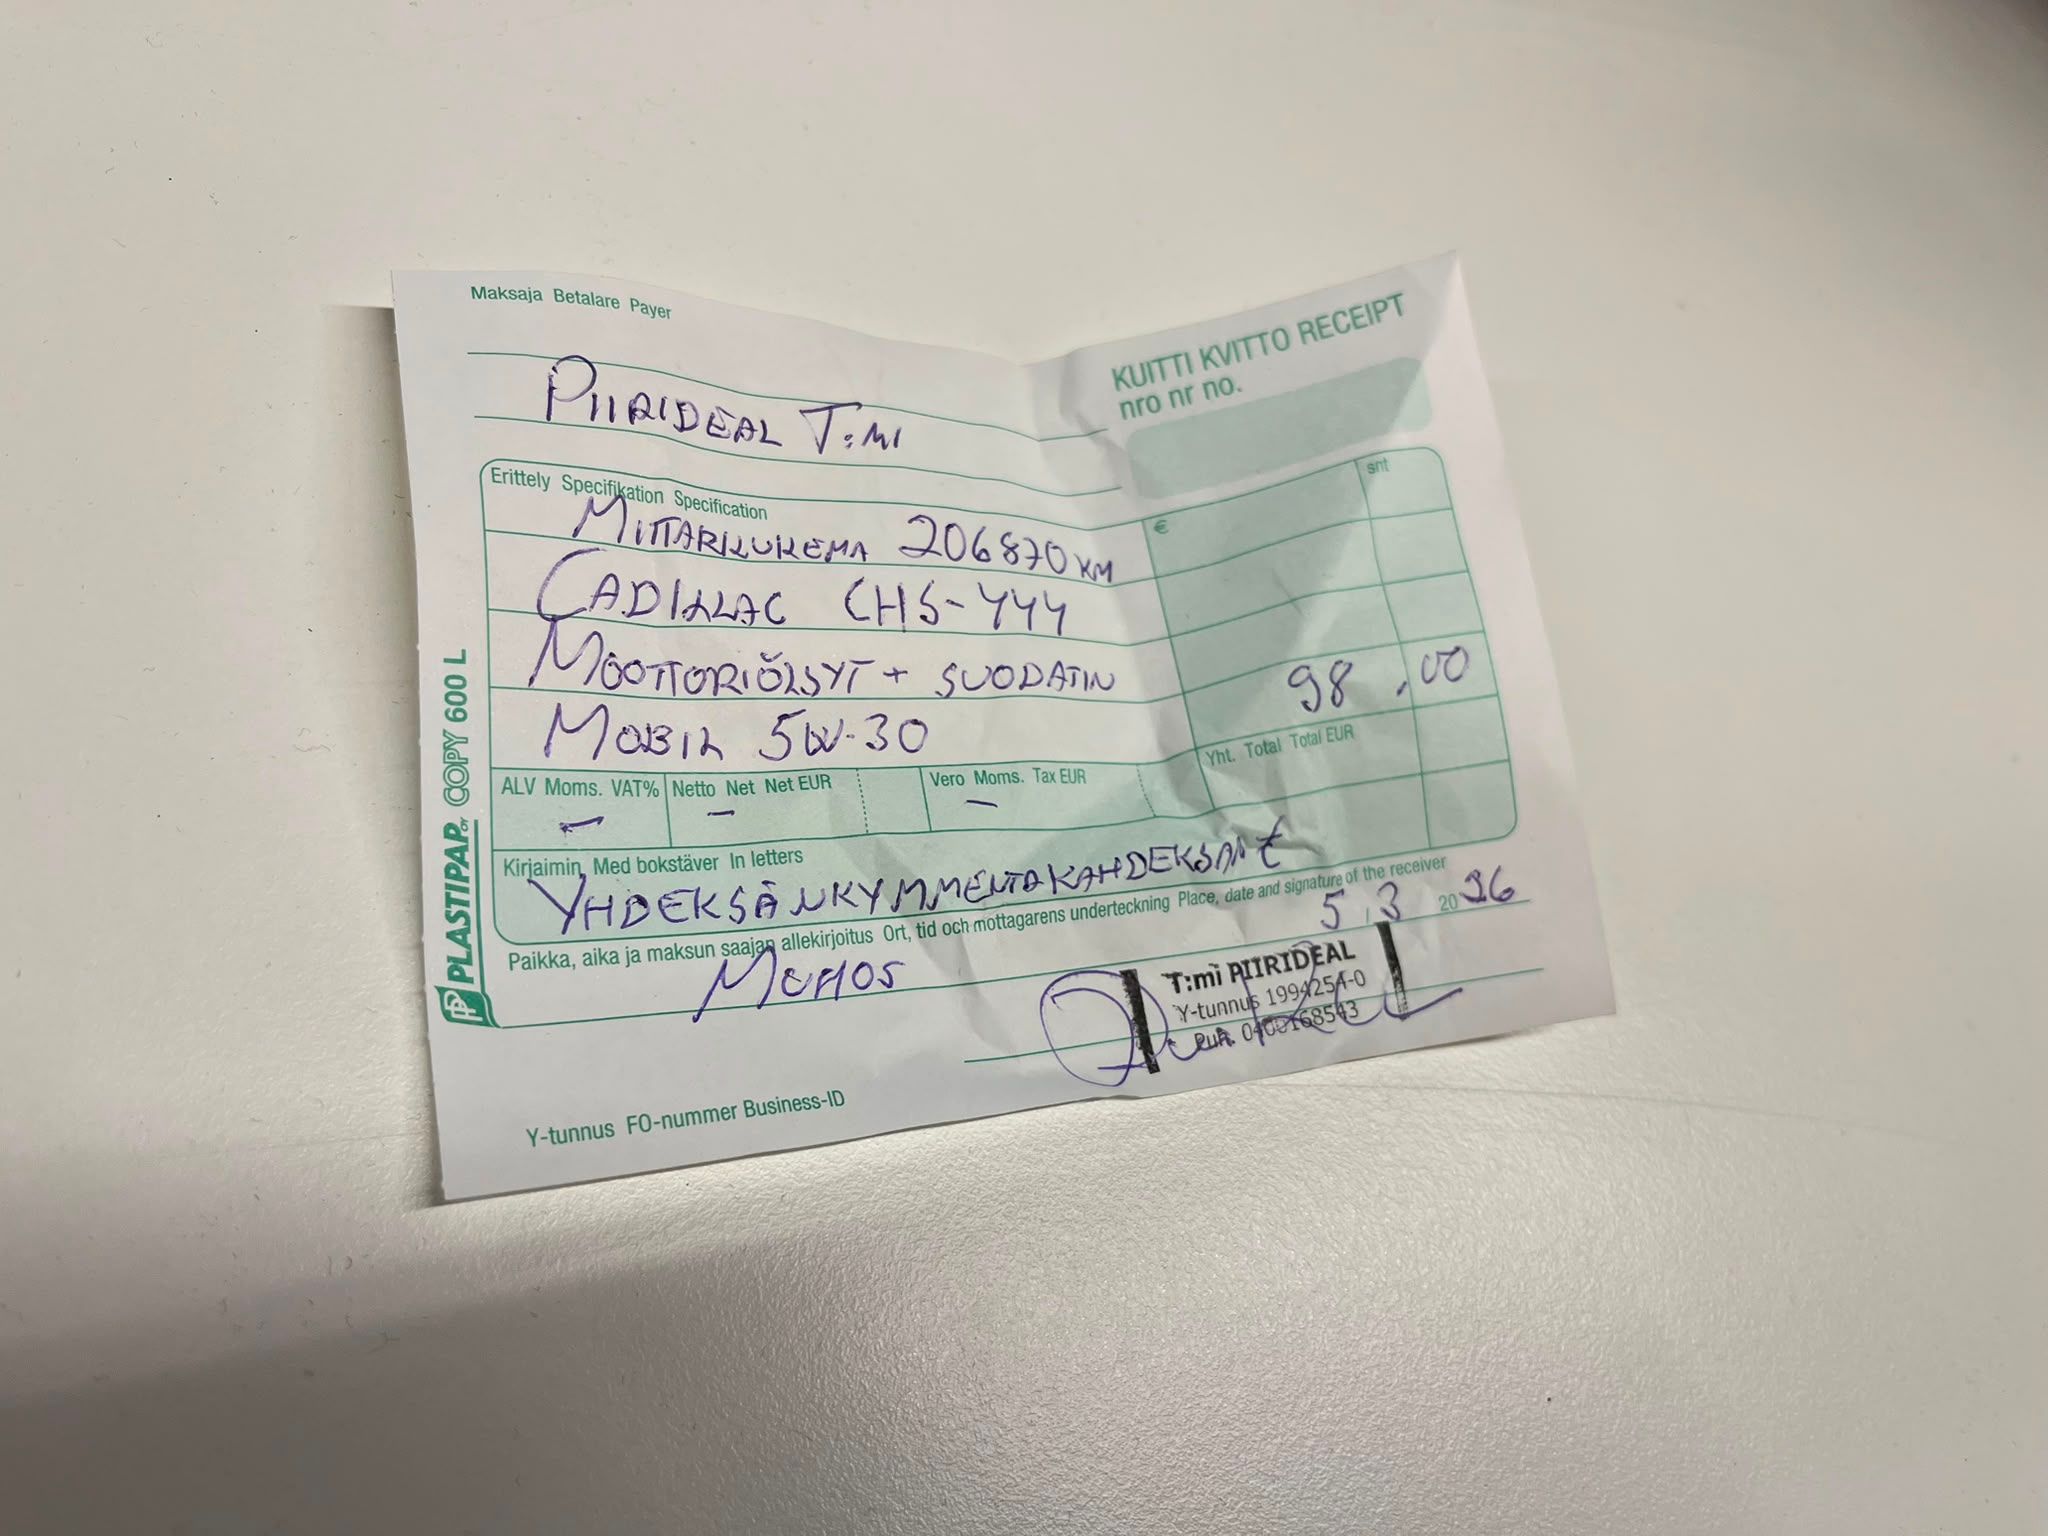 Maksaja Betalare Payer
KUITTI KVITTO RECEIPT
nro nr no.
PIIRIDEAL T:MI
Erittely Specifikation Specification
€ snt
MITTARILUKEMA 206870 KM
CADILLAC CHS-444
MOOTTORIÖLJYT + SUODATIN 98,00
MOBIL 5W-30
Yht. Total Total EUR
ALV Moms. VAT% Netto Net Net EUR Vero Moms. Tax EUR
– – –
Kirjaimin Med bokstäver In letters
YHDEKSÄNKYMMENTAKAHDEKSAN €
Paikka, aika ja maksun saajan allekirjoitus Ort, tid och mottagarens underteckning Place, date and signature of the receiver
MUHOS 5.3 20
T:mi PIIRIDEAL
Y-tunnus 1994254-0
Puh. 0400168543
Y-tunnus FO-nummer Business-ID
PLASTIPAP OY COPY 600 L